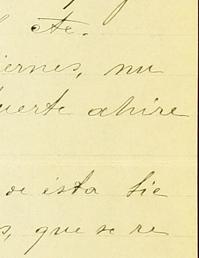 etc.
iernes, nu
uerte ahire
de ésta tie
s, que se re